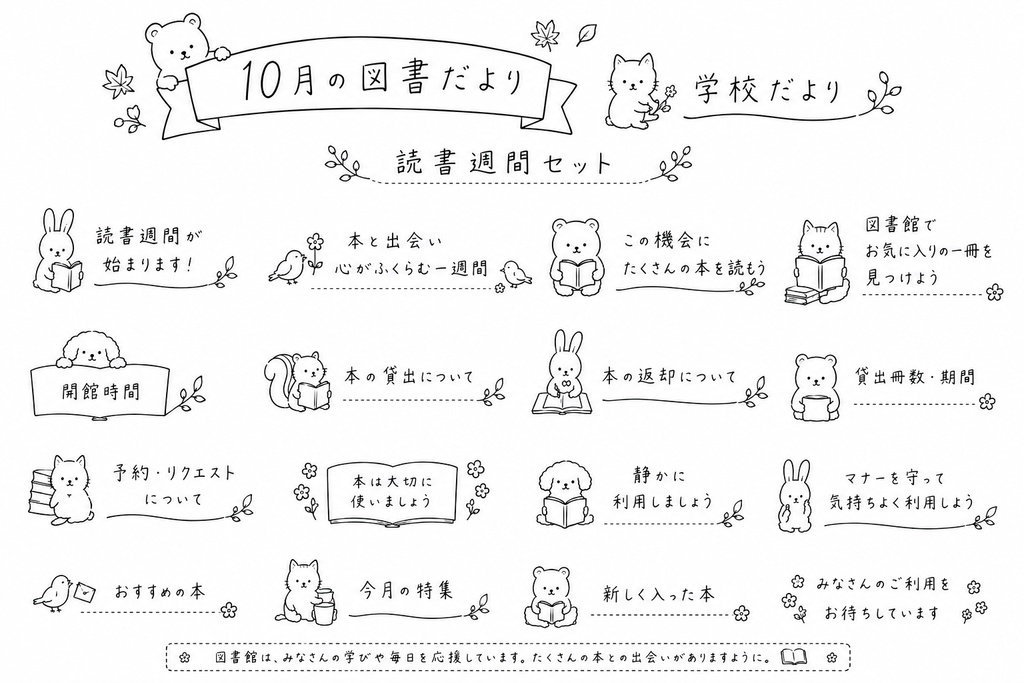 10月の図書だより
学校だより
読書週間セット
読書週間が
始まります!
本と出会い
心がふくらむ一週間
この機会に
たくさんの本を読もう
図書館で
お気に入りの一冊を
見つけよう
開館時間
本の貸出について
本の返却について
貸出冊数・期間
予約・リクエスト
について
本は大切に
使いましょう
静かに
利用しましょう
マナーを守って
気持ちよく利用しよう
おすすめの本
今月の特集
新しく入った本
みなさんのご利用を
お待ちしています
図書館は、みなさんの学びや毎日を応援しています。たくさんの本との出会いがありますように。